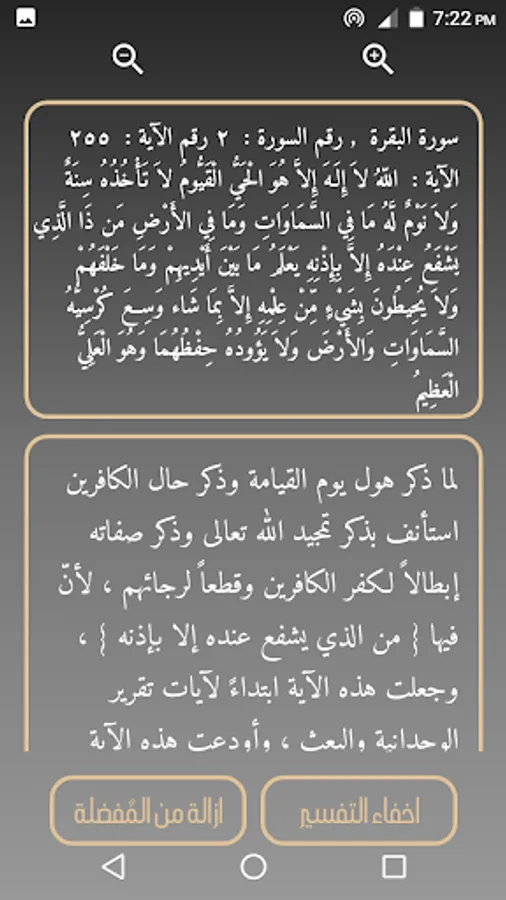 7:22 PM
سورة البقرة , رقم السورة : ٢ رقم الآية : ٢٥٥
الآية : اللّهُ لاَ إِلَـهَ إِلاَّ هُوَ الْحَيُّ الْقَيُّومُ لاَ تَأْخُذُهُ سِنَةٌ
وَلاَ نَوْمٌ لَّهُ مَا فِي السَّمَاوَاتِ وَمَا فِي الأَرْضِ مَن ذَا الَّذِي
يَشْفَعُ عِنْدَهُ إِلاَّ بِإِذْنِهِ يَعْلَمُ مَا بَيْنَ أَيْدِيهِمْ وَمَا خَلْفَهُمْ
وَلاَ يُحِيطُونَ بِشَيْءٍ مِّنْ عِلْمِهِ إِلاَّ بِمَا شَاء وَسِعَ كُرْسِيُّهُ
السَّمَاوَاتِ وَالأَرْضَ وَلاَ يَؤُودُهُ حِفْظُهُمَا وَهُوَ الْعَلِيُّ
الْعَظِيمُ
لما ذكر هول يوم القيامة وذكر حال الكافرين
استأنف بذكر تمجيد الله تعالى وذكر صفاته
إبطالاً لكفر الكافرين وقطعاً لرجائهم ، لأنّ
فيها { من الذي يشفع عنده إلا بإذنه } ،
وجعلت هذه الآية ابتداءً لآيات تقرير
الوحدانية والبعث ، وأودعت هذه الآية
اخفاء التفسير
ازالة من المُفضلة